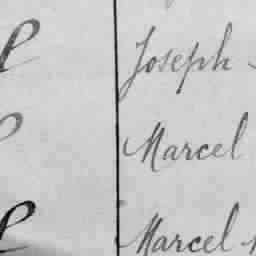 P Joseph
P Marcel
P Marcel